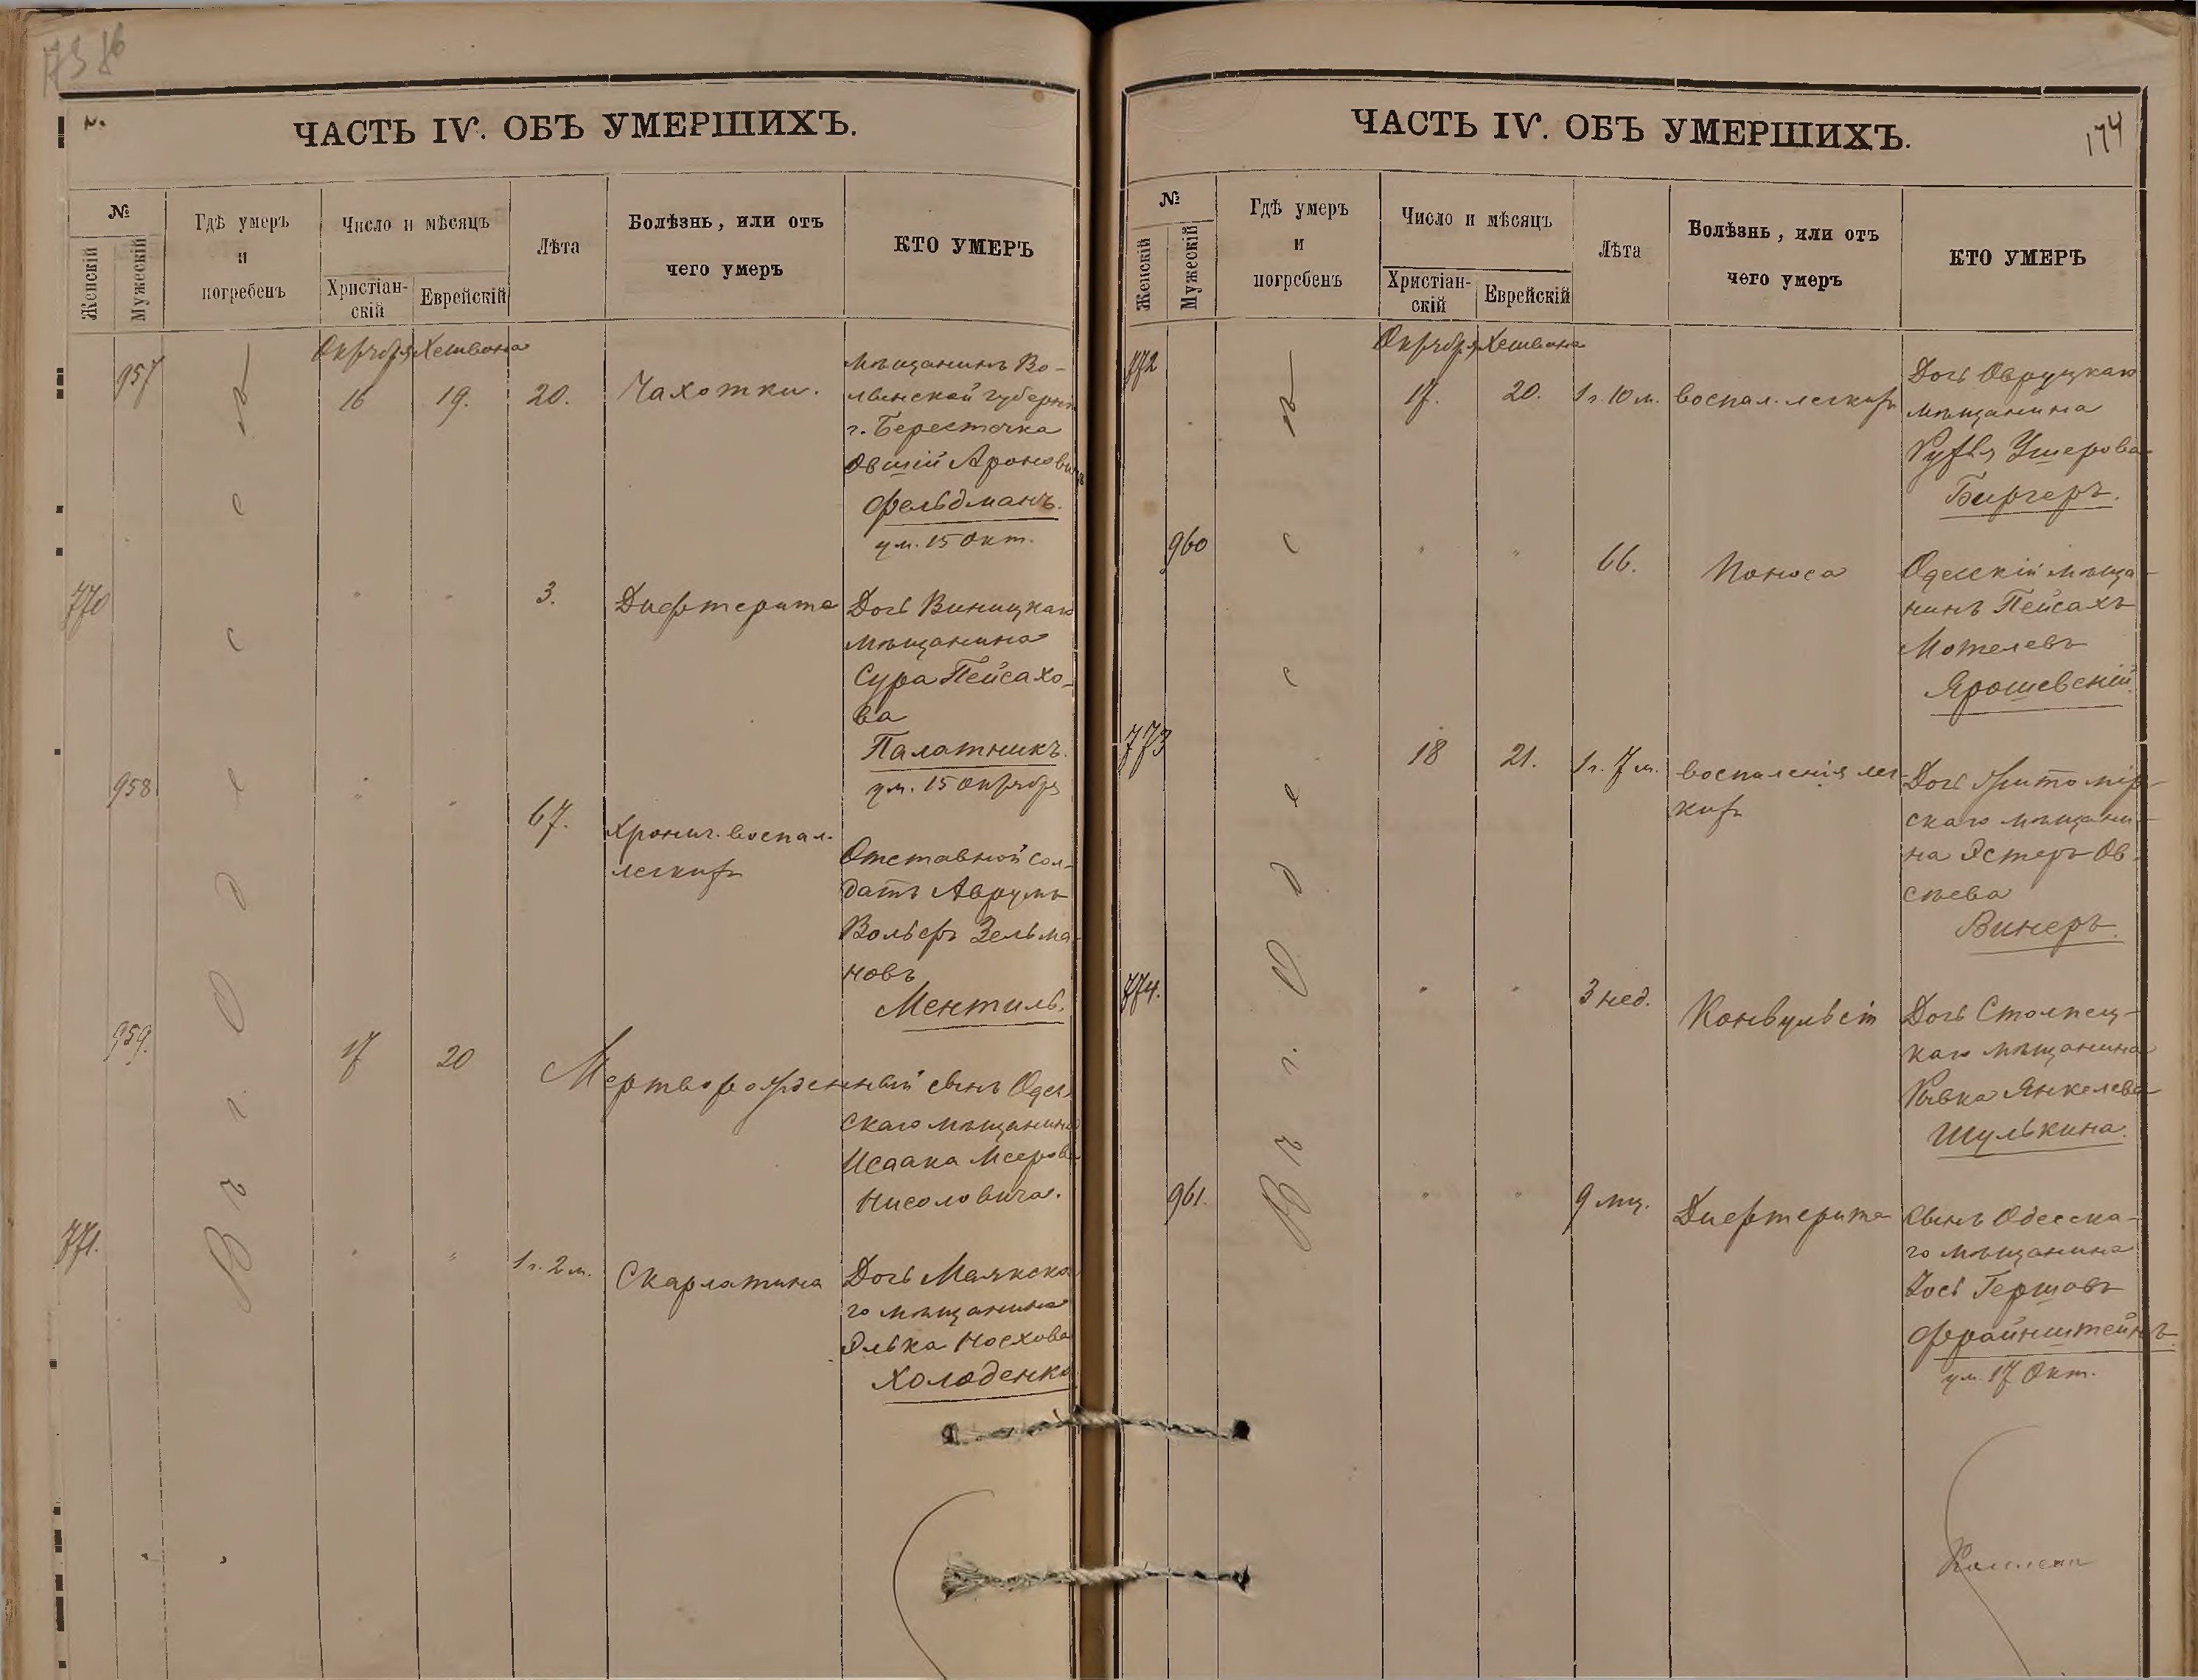 ЧАСТЬ IV. ОБЪ УМЕРШИХЪ.
№
Женскій
Мужескій
Гдѣ умеръ
и
погребенъ
Число и мѣсяцъ
Христіан-
скій
Еврейскій
Лѣта
Болѣзнь, или отъ
чего умеръ
КТО УМЕРЪ
Въ г. Одессѣ
Октября Хешвана
957 16 19. 20. Чахотки.
Мѣщанинъ Во-
лынской губерніи
г. Берестечка
Овшій Ароновичъ
Фельдманъ.
ум. 15 Окт.
770 " " 3. Дифтерита
Дочь Виницкаго
мѣщанина
Сура Пейсахо-
ва
Палатникъ.
ум. 15 Октября
958 " " 67. Хронич. воспал.
легкихъ
Отставной сол-
датъ Аврумъ
Вольфъ Зельма-
новъ
Ментиль.
959. 17 20 Мертворожденный сынъ Одес-
скаго мѣщанина
Исаака Меерова
Нисоловича.
771. " " 1 г. 2 м. Скарлатина
Дочь Маякска-
го мѣщанина
Элька
Холоденко
ЧАСТЬ IV. ОБЪ УМЕРШИХЪ.
174
№
Женскій
Мужескій
Гдѣ умеръ
и
погребенъ
Число и мѣсяцъ
Христіан-
скій
Еврейскій
Лѣта
Болѣзнь, или отъ
чего умеръ
КТО УМЕРЪ
Въ г. Одессѣ
Октября Хешвана
772 17. 20. 1 г. 10 м. воспал. легкихъ
Дочь Овруцкаго
мѣщанина
Рухля Ушерова
Биргеръ.
960 " " 66. Поноса
Одесскій мѣща-
нинъ Пейсахъ
Мотелевъ
Ярошевскій.
773 18 21. 1 г. 7 м. воспаленія лег-
кихъ
Дочь Житомір-
скаго мѣщани-
на Эстеръ Ов-
сѣева
Винеръ.
774. " " 3 нед. Конвульсіи
Дочь Столпец-
каго мѣщанина
Ривка Янкелева
Шулькина.
961. " " 9 мц. Дифтерита
Сынъ Одесска-
го мѣщанина
Іось Гершовъ
Файнштейнъ.
ум. 17 Окт.